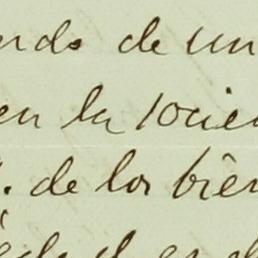 ndo de un
en la socie
. de los bien